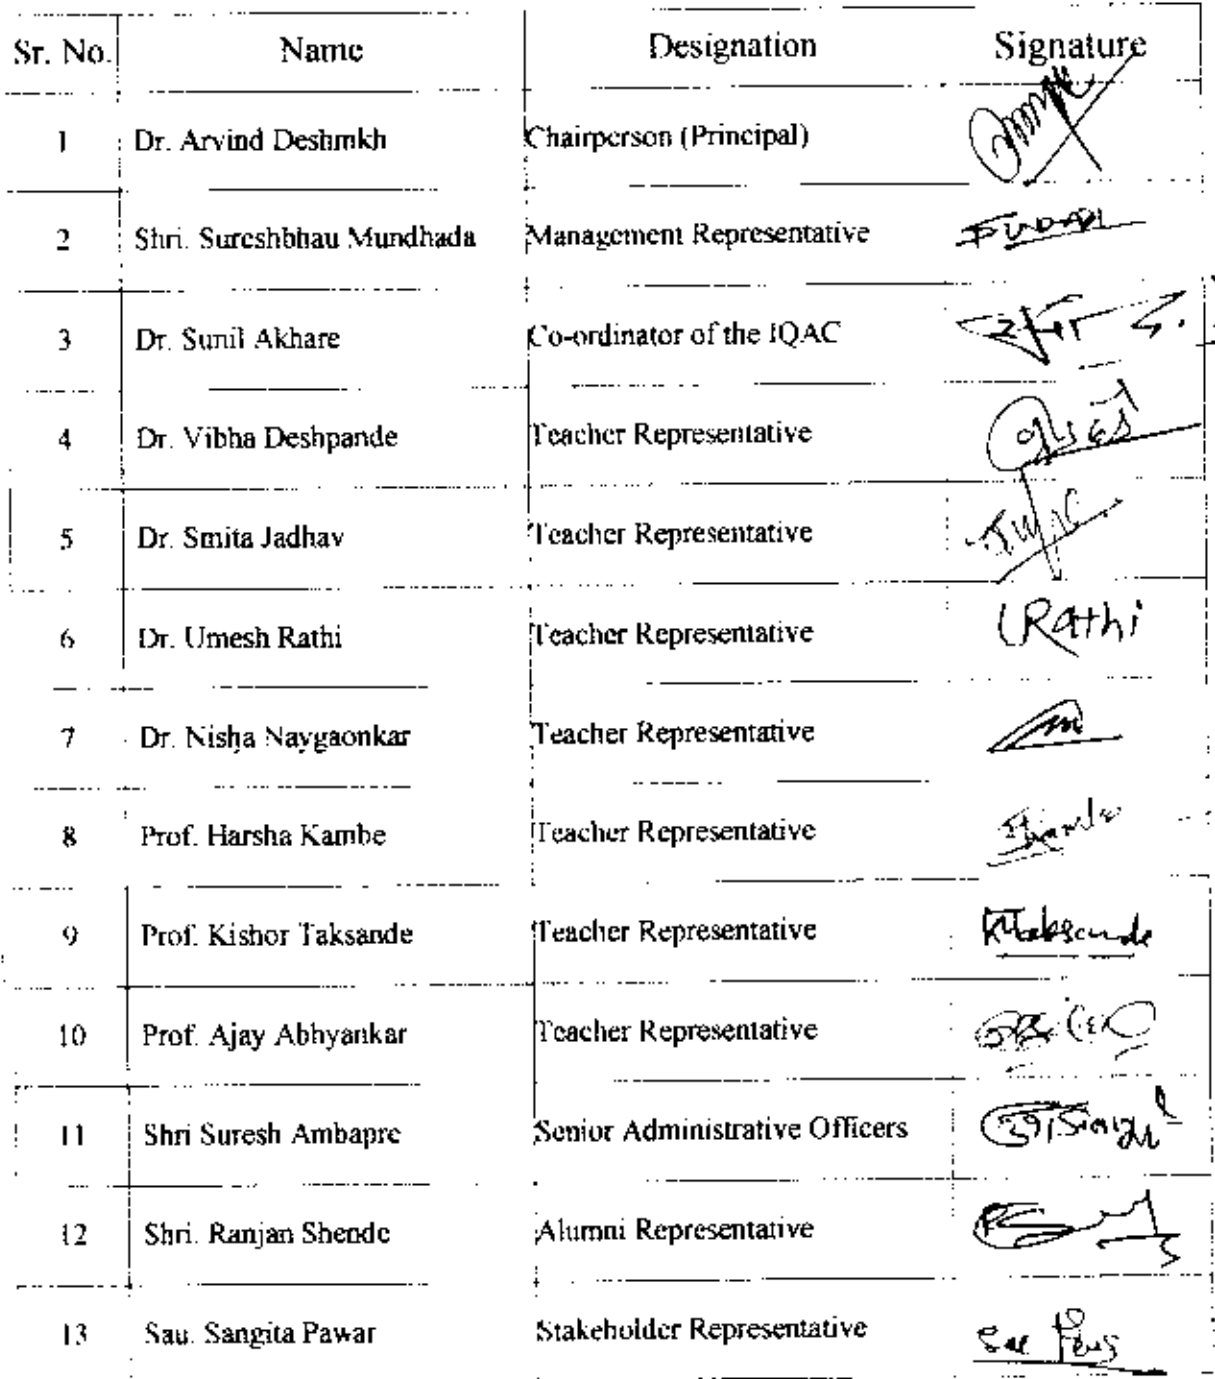 Sr. No. Name Designation Signature
1 Dr. Arvind Deshmkh Chairperson (Principal)
2 Shri. Sureshbhau Mundhada Management Representative
3 Dr. Sunil Akhare Co-ordinator of the IQAC
4 Dr. Vibha Deshpande Teacher Representative
5 Dr. Smita Jadhav Teacher Representative
6 Dr. Umesh Rathi Teacher Representative Rathi
7 Dr. Nisha Naygaonkar Teacher Representative
8 Prof. Harsha Kambe Teacher Representative
9 Prof. Kishor Taksande Teacher Representative KTaksande
10 Prof. Ajay Abhyankar Teacher Representative
11 Shri Suresh Ambapre Senior Administrative Officers
12 Shri. Ranjan Shende Alumni Representative
13 Sau. Sangita Pawar Stakeholder Representative